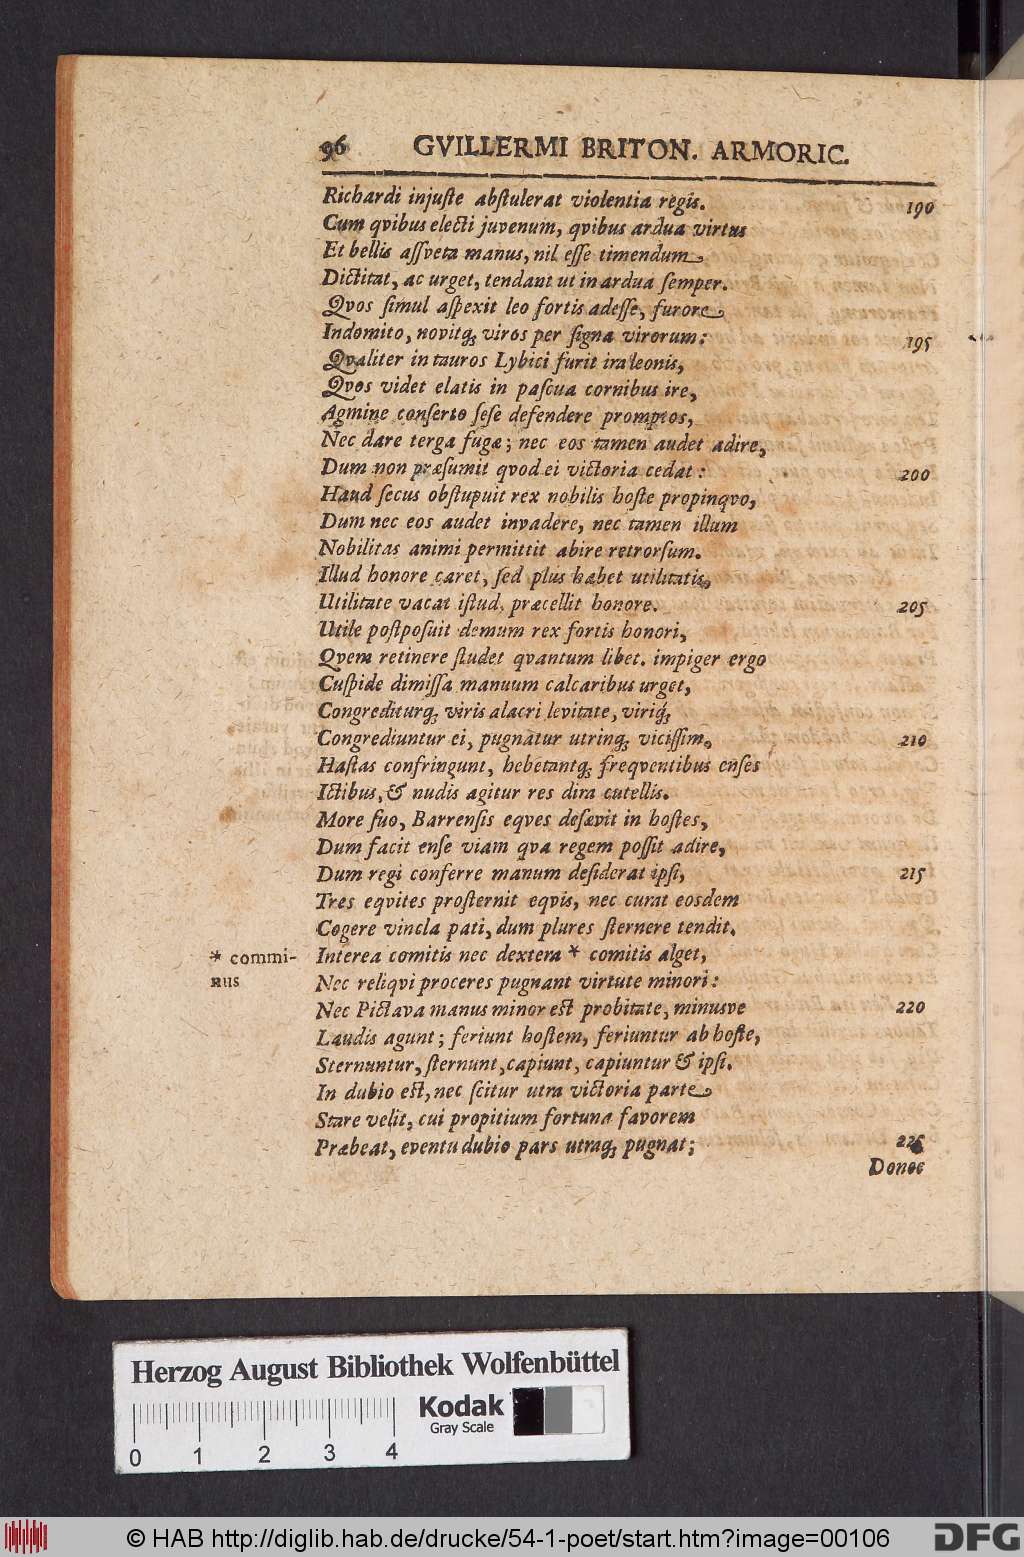 96 GVILLERMI BRITON. ARMORIC.
Richardi injuſte abſtulerat violentia regis. 190
Cum qvibus electi juvenum, qvibus ardua virtus
Et bellis aſſveta manus, nil eſſe timendum
Dictitat, ac urget, tendant ut in ardua ſemper.
Qvos ſimul aſpexit leo fortis adeſſe, furore
Indomito, novitq; viros per ſigna virorum: 195
Qvaliter in tauros Lybici furit ira leonis,
Qvos videt elatis in paſcua cornibus ire,
Agmine conſerto ſeſe defendere promptos,
Nec dare terga fugæ; nec eos tamen audet adire,
Dum non præſumit qvod ei victoria cedat: 200
Haud ſecus obſtupuit rex nobilis hoſte propinqvo,
Dum nec eos audet invadere, nec tamen illum
Nobilitas animi permittit abire retrorſum.
Illud honore caret, ſed plus habet utilitatis,
Utilitate vacat iſtud, præcellit honore. 205
Utile poſtpoſuit demum rex fortis honori,
Qvem retinere ſtudet qvantum libet. impiger ergo
Cuſpide dimiſſa manuum calcaribus urget,
Congrediturq; viris alacri levitate, viriq;
Congrediuntur ei, pugnatur utrinq; viciſſim, 210
Haſtas confringunt, hebetantq; freqventibus enſes
Ictibus, & nudis agitur res dira cutellis.
More ſuo, Barrenſis eqves deſævit in hoſtes,
Dum facit enſe viam qva regem poſſit adire,
Dum regi conferre manum deſiderat ipſi, 215
Tres eqvites proſternit eqvis, nec curat eosdem
Cogere vincla pati, dum plures ſternere tendit.
Interea comitis nec dextera * comitis alget,
* commi-
nus
Nec reliqvi proceres pugnant virtute minori:
Nec Pictava manus minor eſt probitate, minusve 220
Laudis agunt; feriunt hoſtem, feriuntur ab hoſte,
Sternuntur, ſternunt, capiunt, capiuntur & ipſi.
In dubio eſt, nec ſcitur utra victoria parte
Stare velit, cui propitium fortuna favorem
Præbeat, eventu dubio pars utraq; pugnat; 225
Donec
Herzog August Bibliothek Wolfenbüttel
Kodak
Gray Scale
0 1 2 3 4
© HAB http://diglib.hab.de/drucke/54-1-poet/start.htm?image=00106
DFG